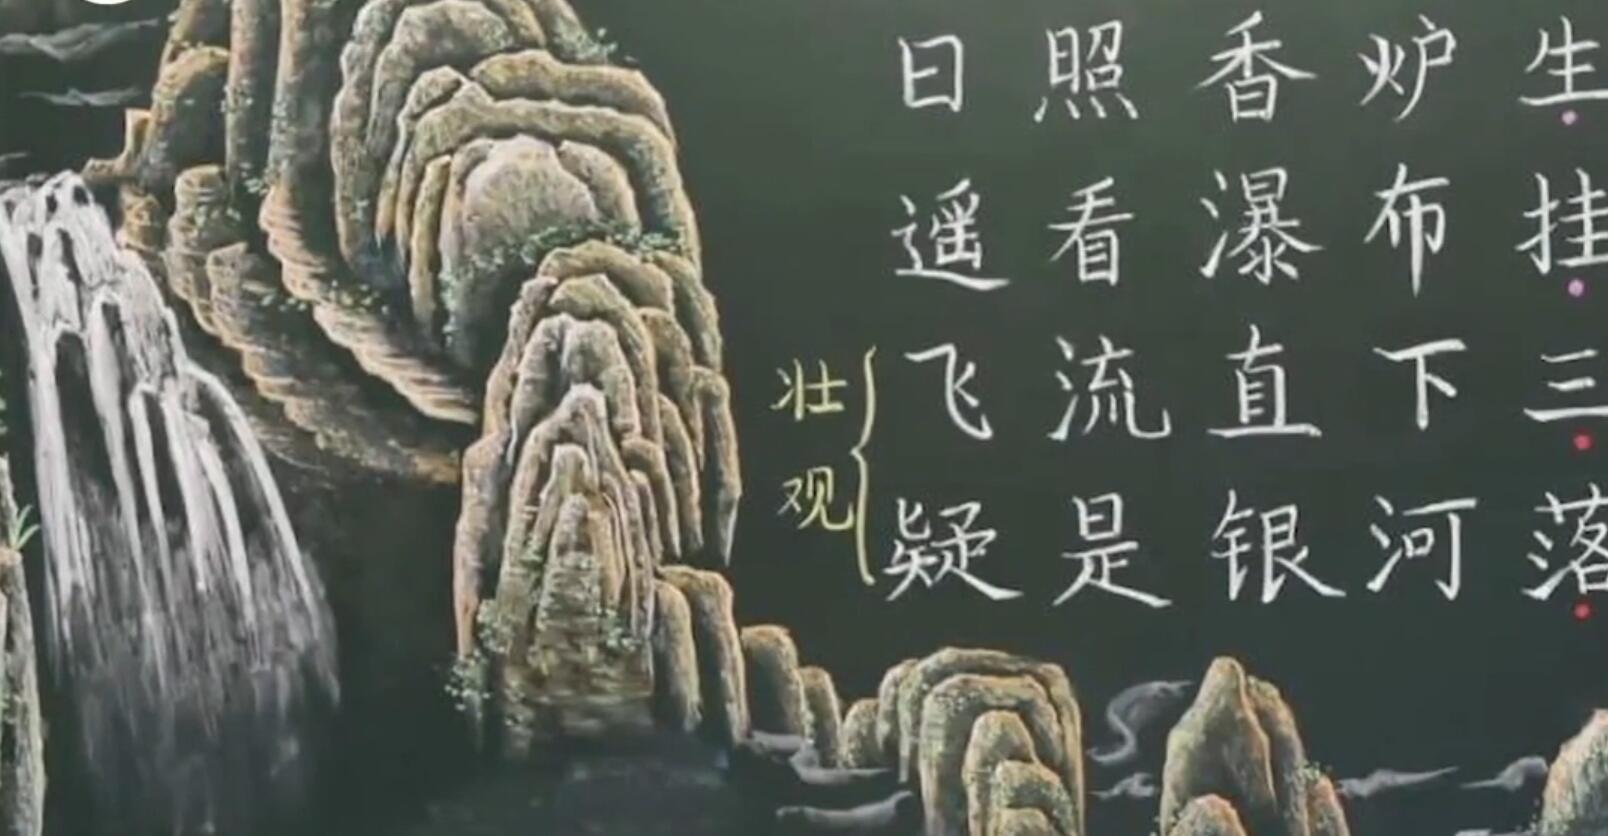 日照香炉生
遥看瀑布挂
壮观
飞流直下三
疑是银河落